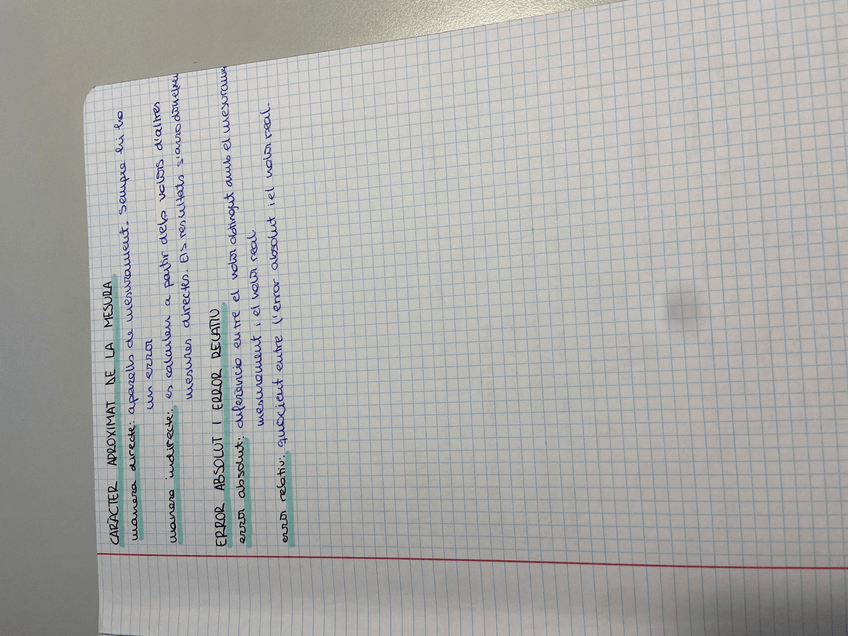 CARÀCTER APROXIMAT DE LA MESURA
manera directe: aparells de mesurament. Sempre hi ha
un error
manera indirecte: es calculen a partir dels valors d'altres
mesures directes. Els resultats s'arrodineixen
ERROR ABSOLUT I ERROR RELATIU
error absolut: diferència entre el valor obtingut amb el
mesurament i el valor real
error relatiu: quocient entre l'error absolut i el valor real.